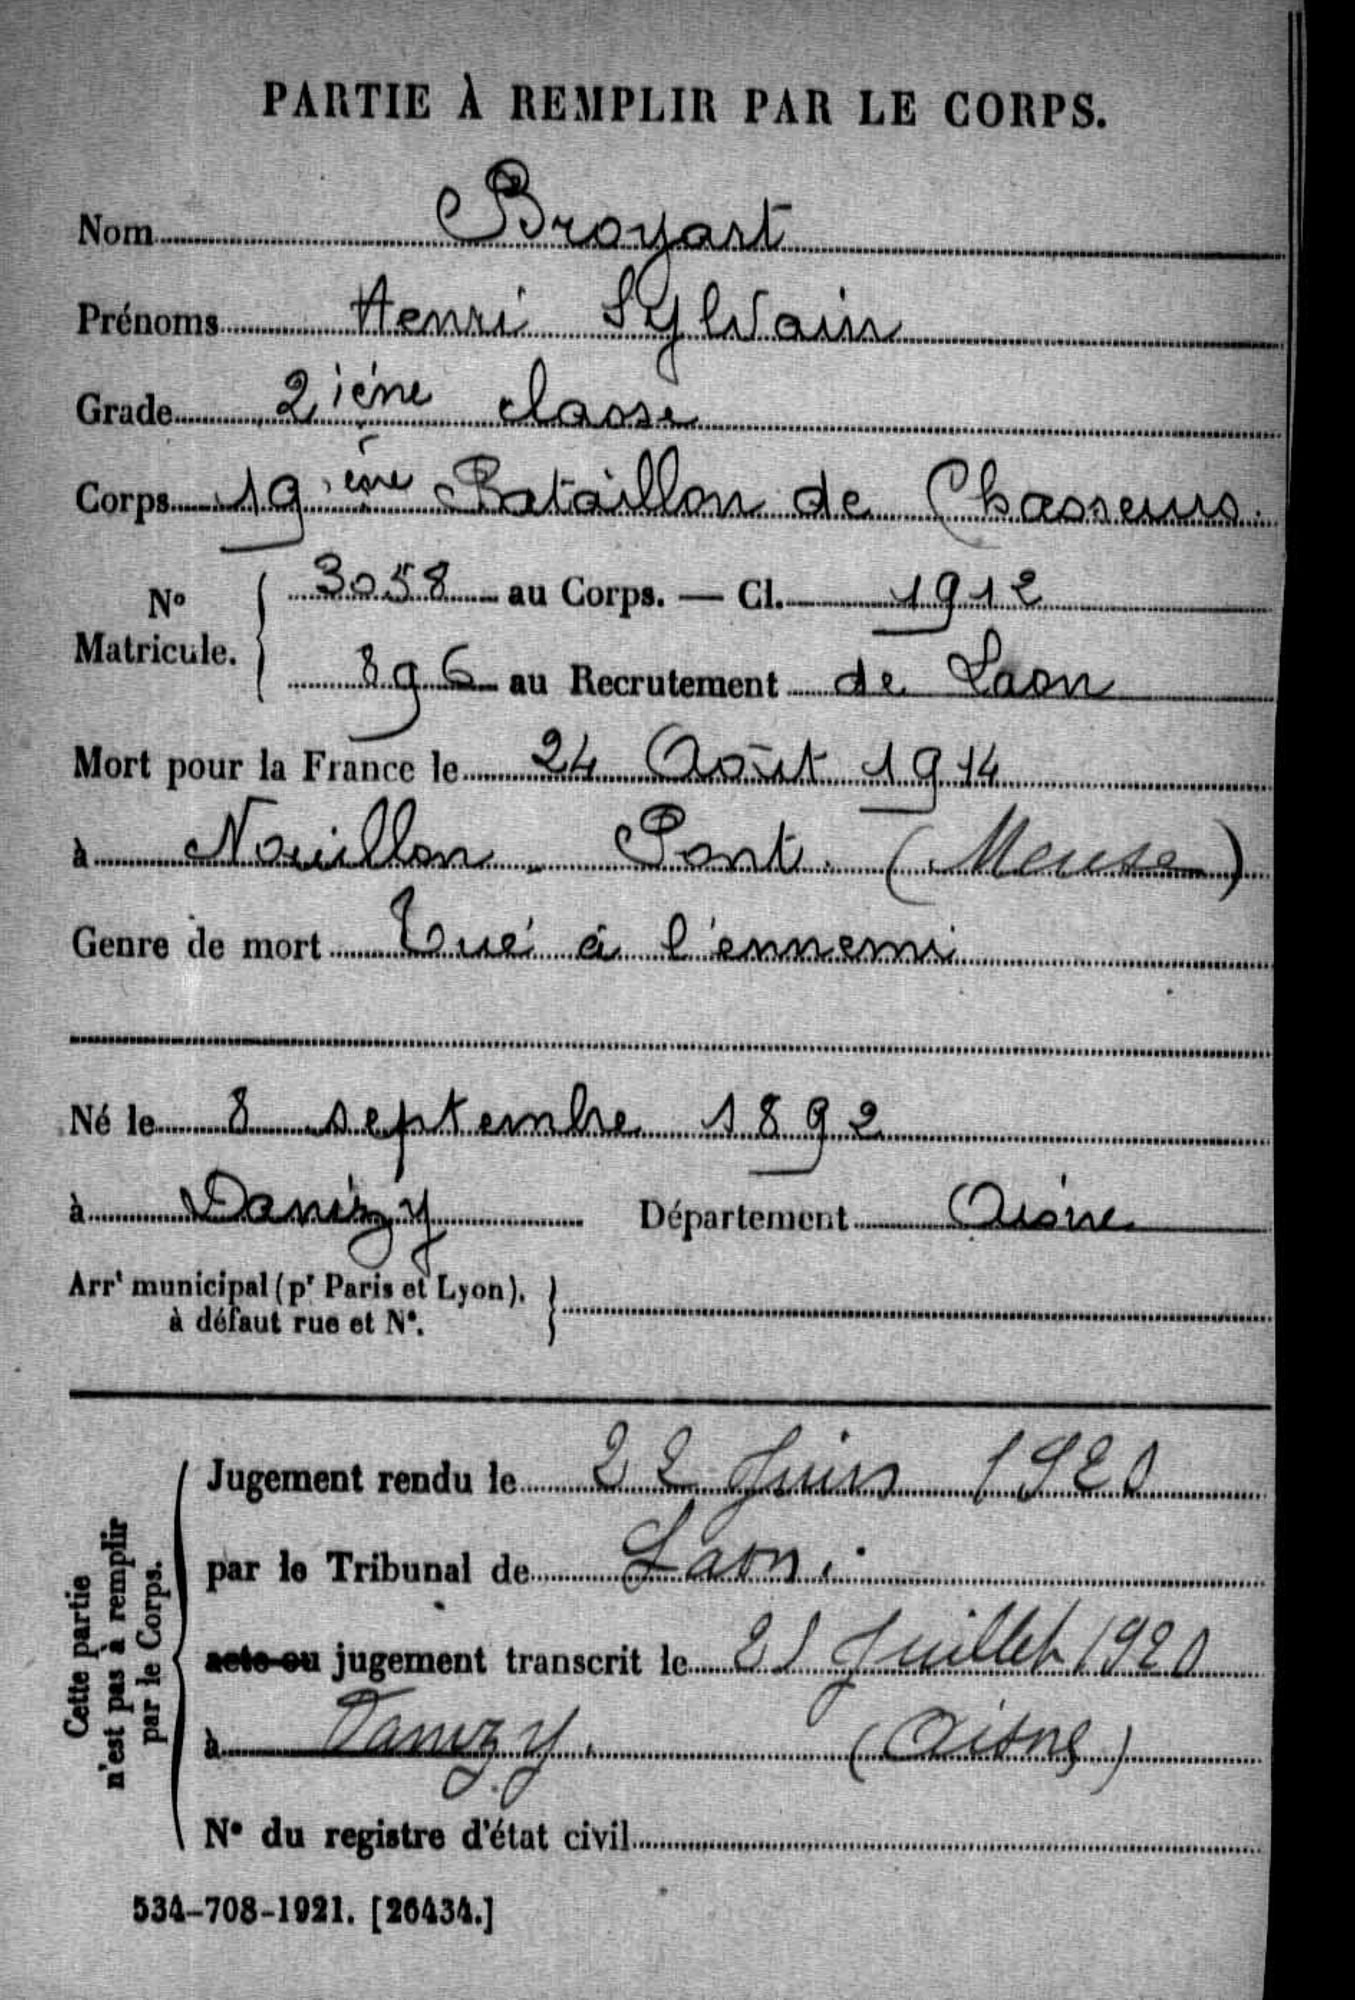 PARTIE À REMPLIR PAR LE CORPS.
Nom Broyart
Prénoms Henri Sylvain
Grade 2ième classe
Corps 19ième Bataillon de Chasseurs.
N° Matricule. 3058 au Corps. — Cl. 1912
896 au Recrutement de Laon
Mort pour la France le 24 Août 1914
à Nouillon - Pont. (Meuse)
Genre de mort Tué à l'ennemi
Né le 8 septembre 1892
à Danizy Département Aisne
Arrt municipal (pr Paris et Lyon),
à défaut rue et N°.
Cette partie
n'est pas à remplir
par le Corps.
Jugement rendu le 22 Juin 1920
par le Tribunal de Laon.
acte ou jugement transcrit le 21 Juillet 1920
à Danizy. (Aisne)
N° du registre d'état civil
534-708-1921. [26434.]